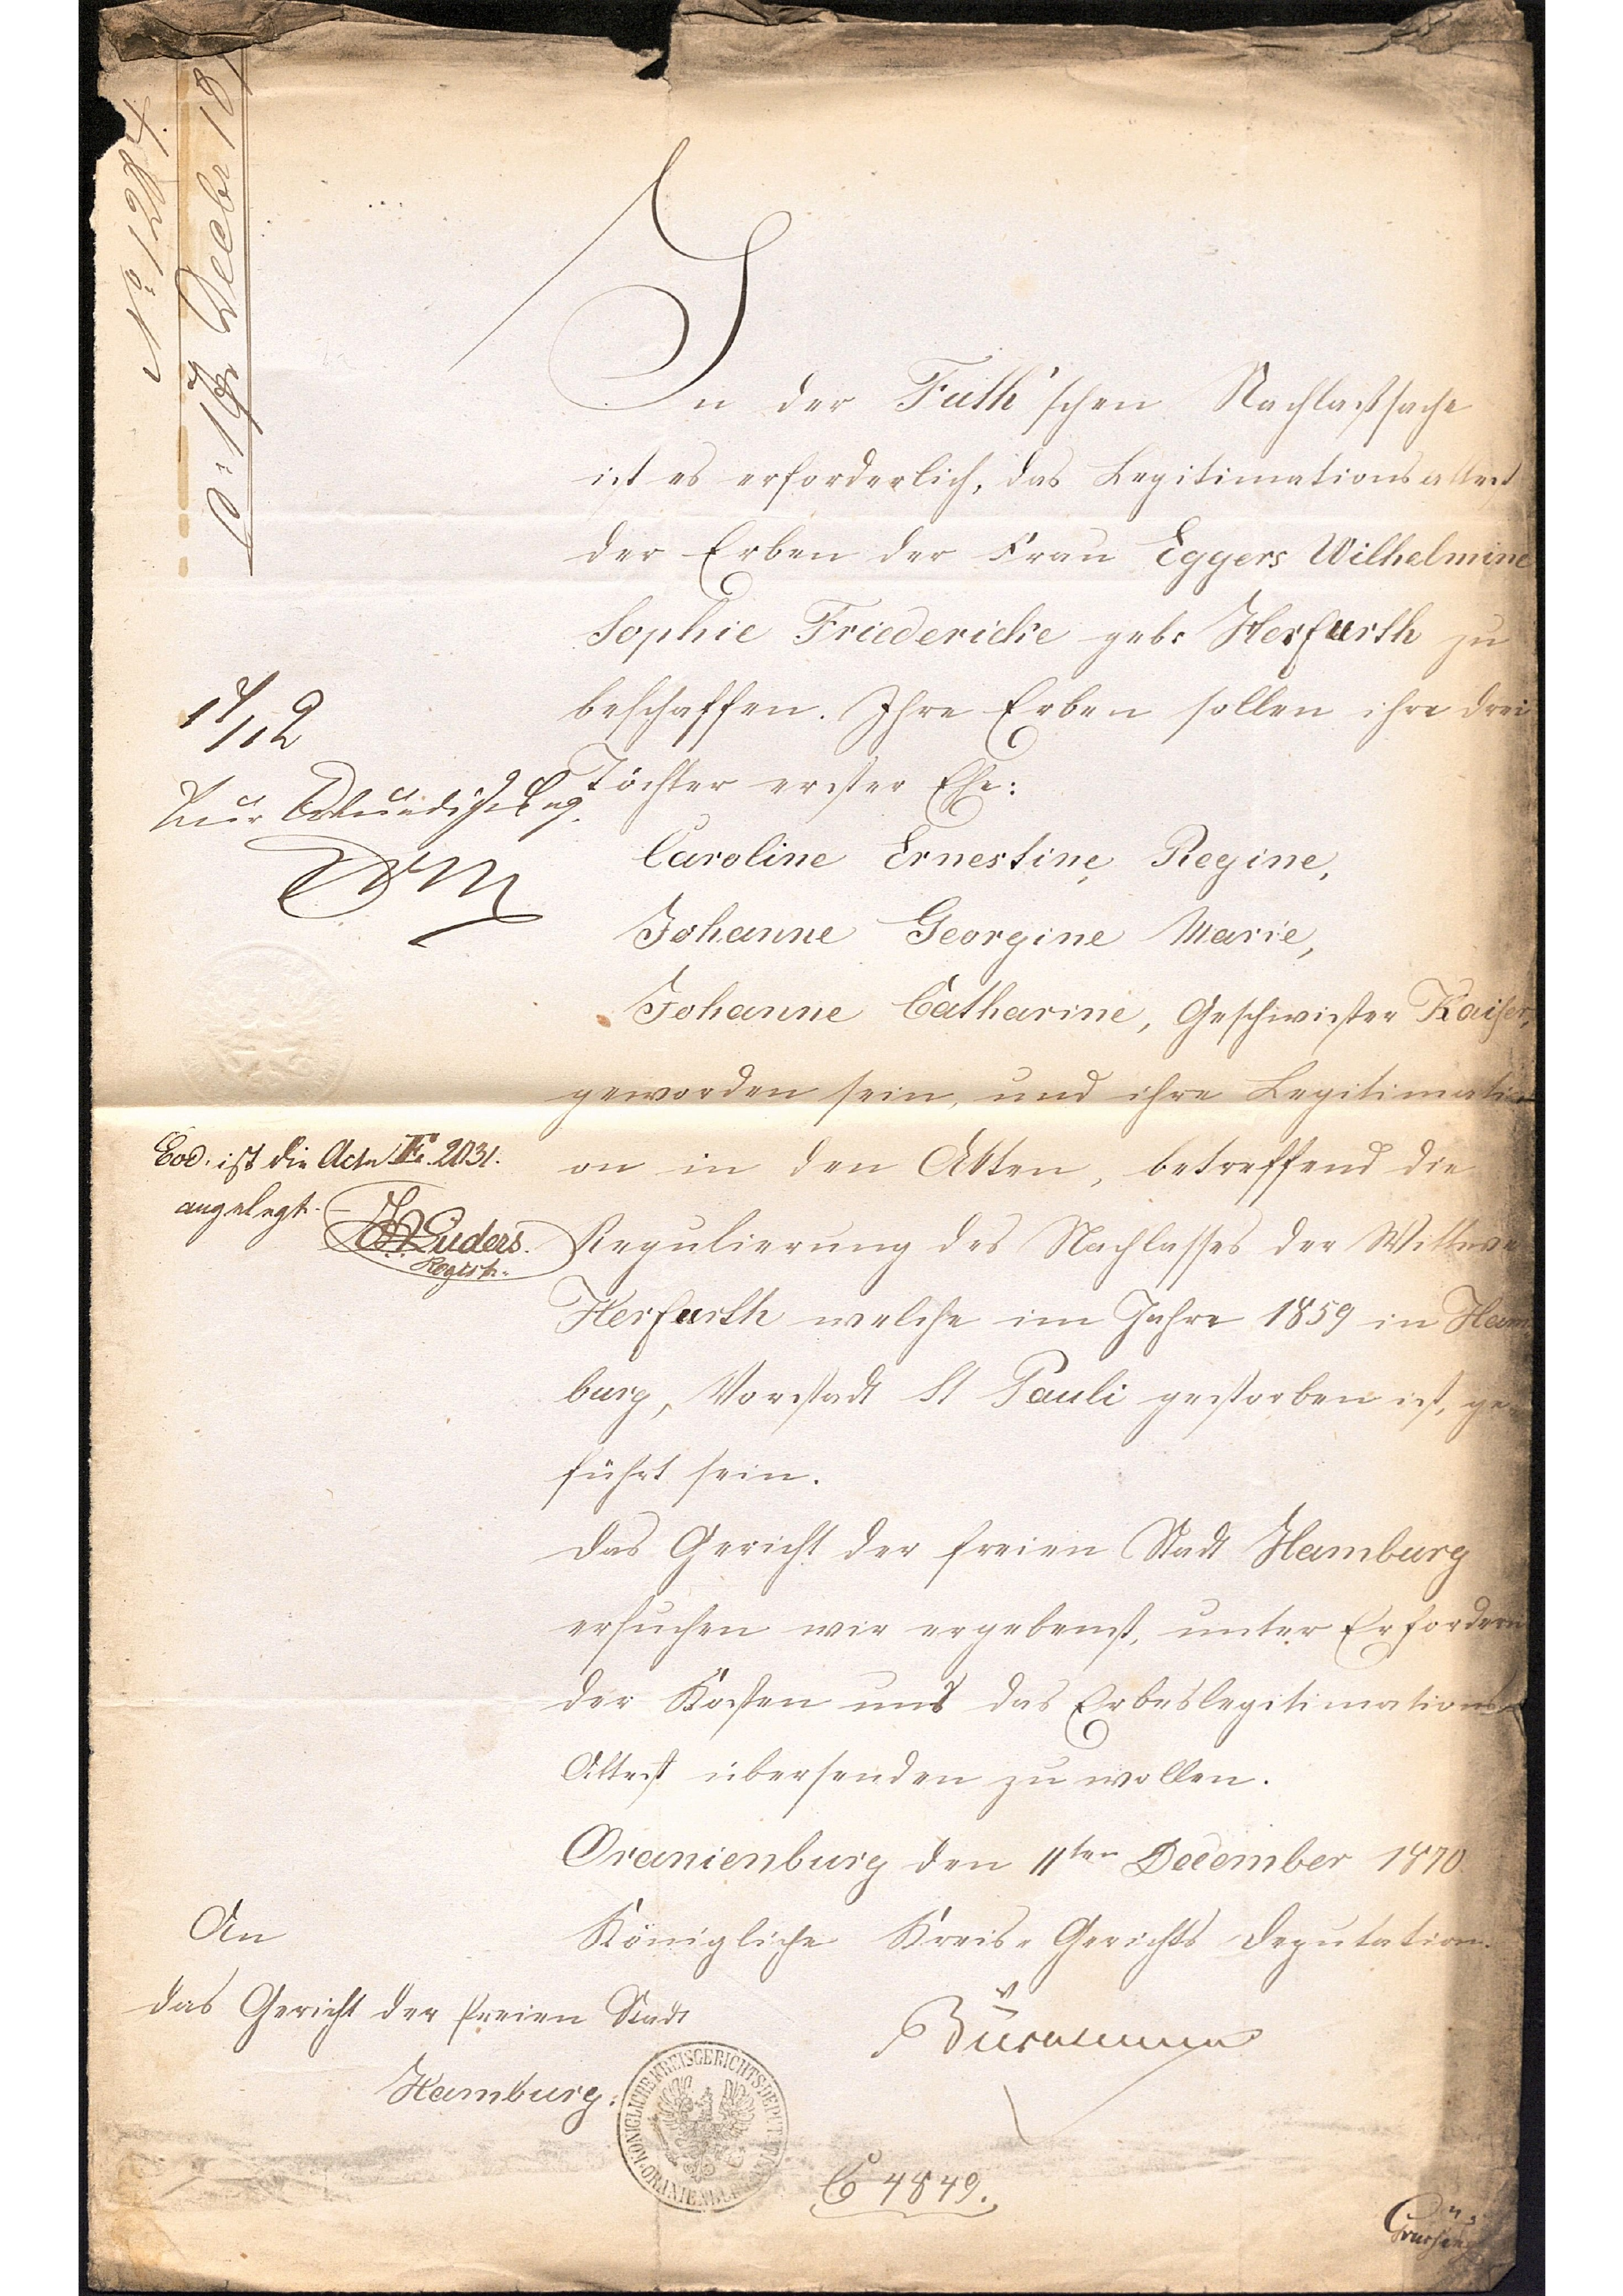 No 1284.
p: 17 Decbr 18
In der Futh'schen Nachlaßsache
ist es erforderlich, das Legitimationsattest
der Erben der Frau Eggers Wilhelmine
Sophie Friedericke geb: Herfurth zu
beschaffen. Ihre Erben sollen ihre drei
Töchter erster Ehe:
Caroline Ernestine Regine,
Johanne Georgine Marie,
Johanne Catharine, Geschwister Kaiser,
geworden sein, und ihre Legitimati
on in den Akten, betreffend die
Regulierung des Nachlasses der Wittwe
Herfurth welche im Jahre 1859 in Ham
burg, Vorstadt St Pauli gestorben ist, ge
führt sein.
Das Gericht der freien Stadt Hamburg
ersuchen wir ergebenst, unter Erfordern
der Kosten uns das Erbeslegitimations
Attest übersenden zu wollen.
Oranienburg den 11ten December 1870.
Königliche Kreis-Gerichts Deputation.
17/12
Zur
Eod. ist die Acte F. 2031.
angelegt.
Lüders.
Registr.
An
das Gericht der freien Stadt
Hamburg.
KÖNIGLICHE KREISGERICHTSDEPUTATION
ORANIENBURG
C 4849.